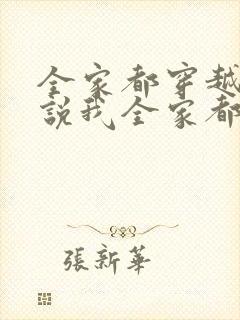 全家都穿越
說我全家都
張新華